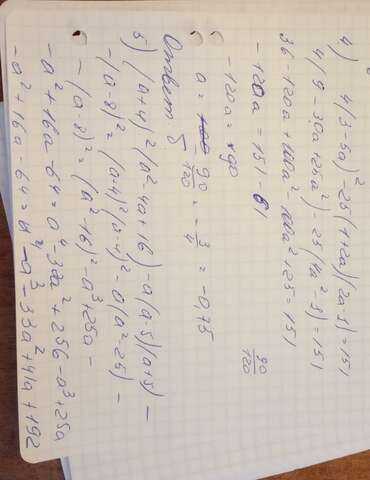 4) 4(3-5a)²-25(1+2a)(2a-1)=151
4(9-30a+25a²)-25(4a²-1)=151
36-120a+100a²-100a²+25=151
-120a=151-61
-120a=90
a = 90/-120 = -3/4 = -0,75
90/120
Ответ б
5) (a+4)²(a²-4a+16)-a(a-5)(a+5)-
-(a-8)²=(a-4)²(a-4)²-a(a²-25)-
-(a-8)²=(a²-16)²-a³+25a-
-a²+16a-64=a⁴-32a²+256-a³+25a
-a²+16a-64=a⁴-a³-33a²+41a+192